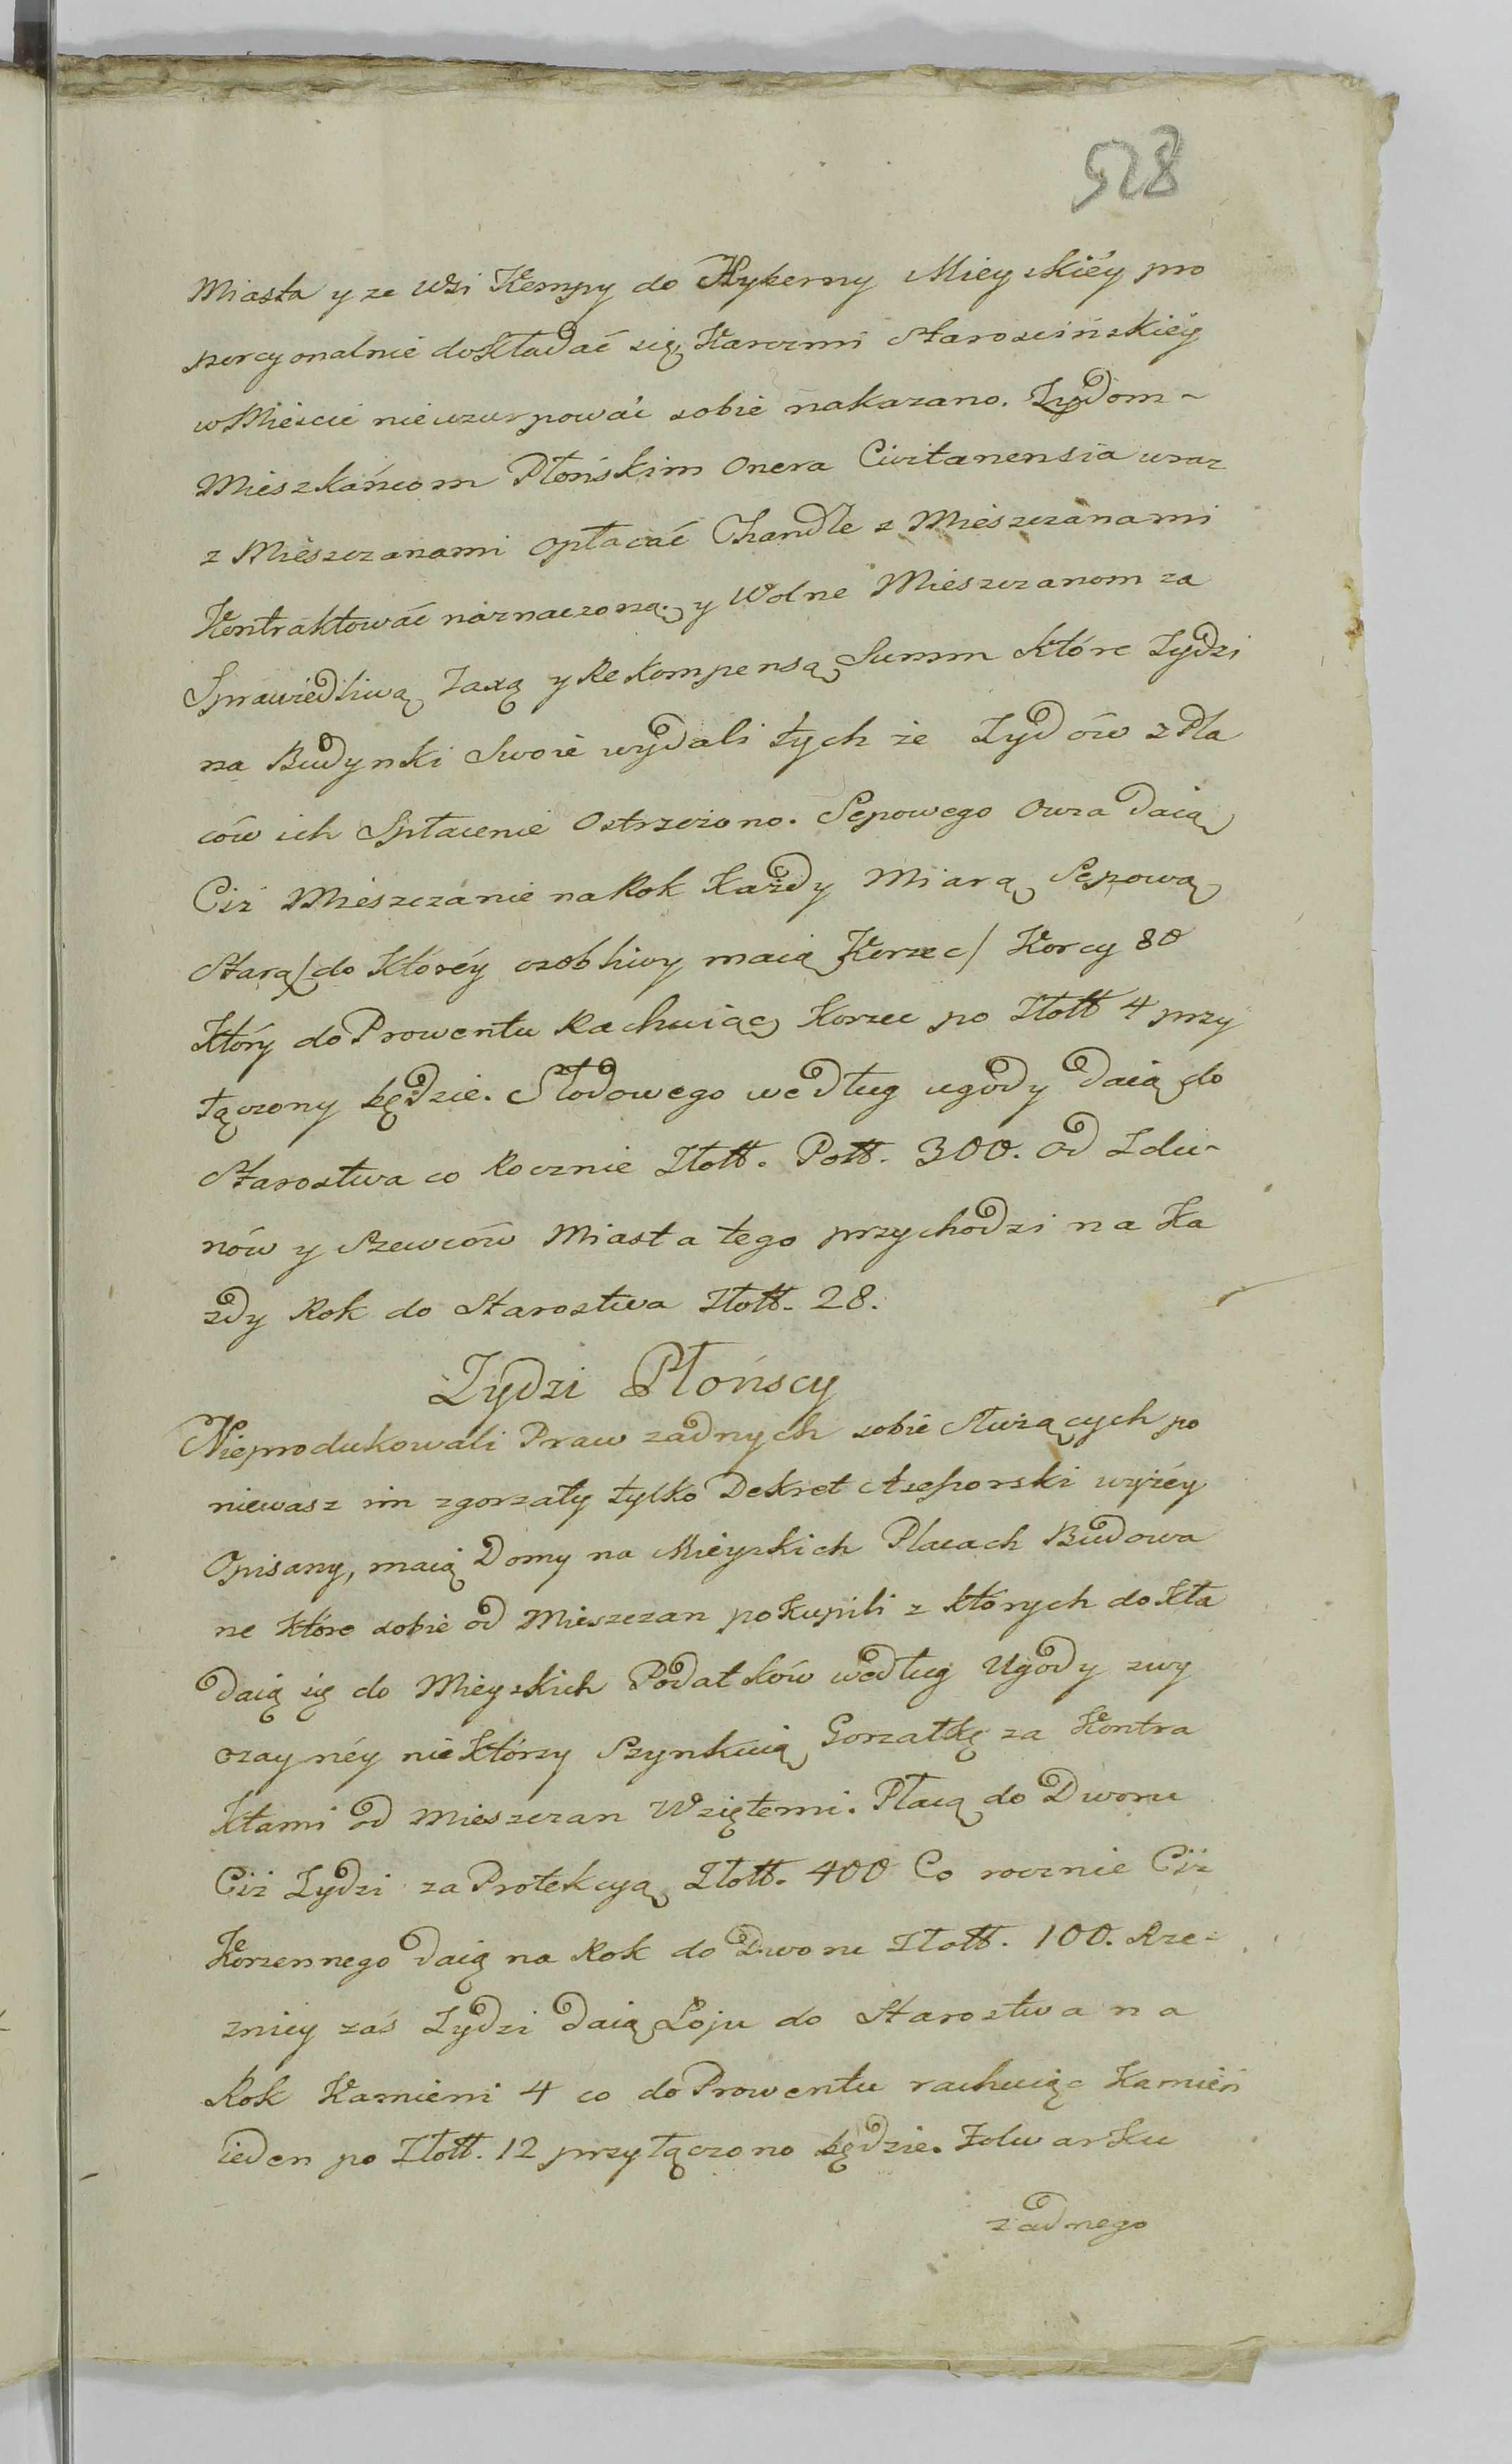 528
Miasta y ze Wsi Kempy do Hyberny Mieyskiéy pro
porcyonalnie dokładać się, Karczmi Starościńskiéy
w Mieście nieuzurpować sobie nakazano. Zydom-
Mieszkańcom Płońskim Onera Civitanensia wraz
z Mieszczanami opłacać Chandle z Mieszczanami
Kontraktować naznaczono. y Wolne Mieszczanom za
Sprawiedliwą Taxą y Rekompensą Summ które Zydzi
na Budynki Swoie wydali tych że Zydów z Pla
ców ich Spłacenie Ostrzeżono. Sepowego Owsa daią
Ciż Mieszczanie na Rok Każdy Miarą Sepową
Starą/do któréy osobliwy maią Korzec/ Korcy 80
Który do Prowentu Rachuiąc Korzec po Złott 4 przy
łączony będzie. Słodowego według ugody daią do
Starostwa co Rocznie Złott. Poll. 300. od Zdu-
nów y Szewców Miasta tego przychodzi na Ka
zdy Rok do Starostwa Złott. 28.
Zydzi Płońscy
Nieprodukowali Praw zadnych sobie służących po
niewasz im zgorzały tylko Dekret Assessorski wyżéy
Opisany, maią Domy na Mieyskich Placach Budowa
ne które sobie od Mieszczan pokupili z których dokła
daią się do Mieyskich Podatków według Ugody zwy
czaynéy niektórzy Szynkuią Gorzałkę za Kontra
ktami od Mieszczan Wziętemi. Płacą do Dworu
Ciż Zydzi za Protekcyą Złott. 400 Co rocznie Ciż
Korzennego daią na Rok do Dworu Złott. 100. Rze-
znicy zaś Zydzi daią Łoju do Starostwa na
Rok Kamieni 4 co do Prowentu rachuiąc Kamień
ieden po Złott. 12 przyłączono będzie. Folwarku
żadnego